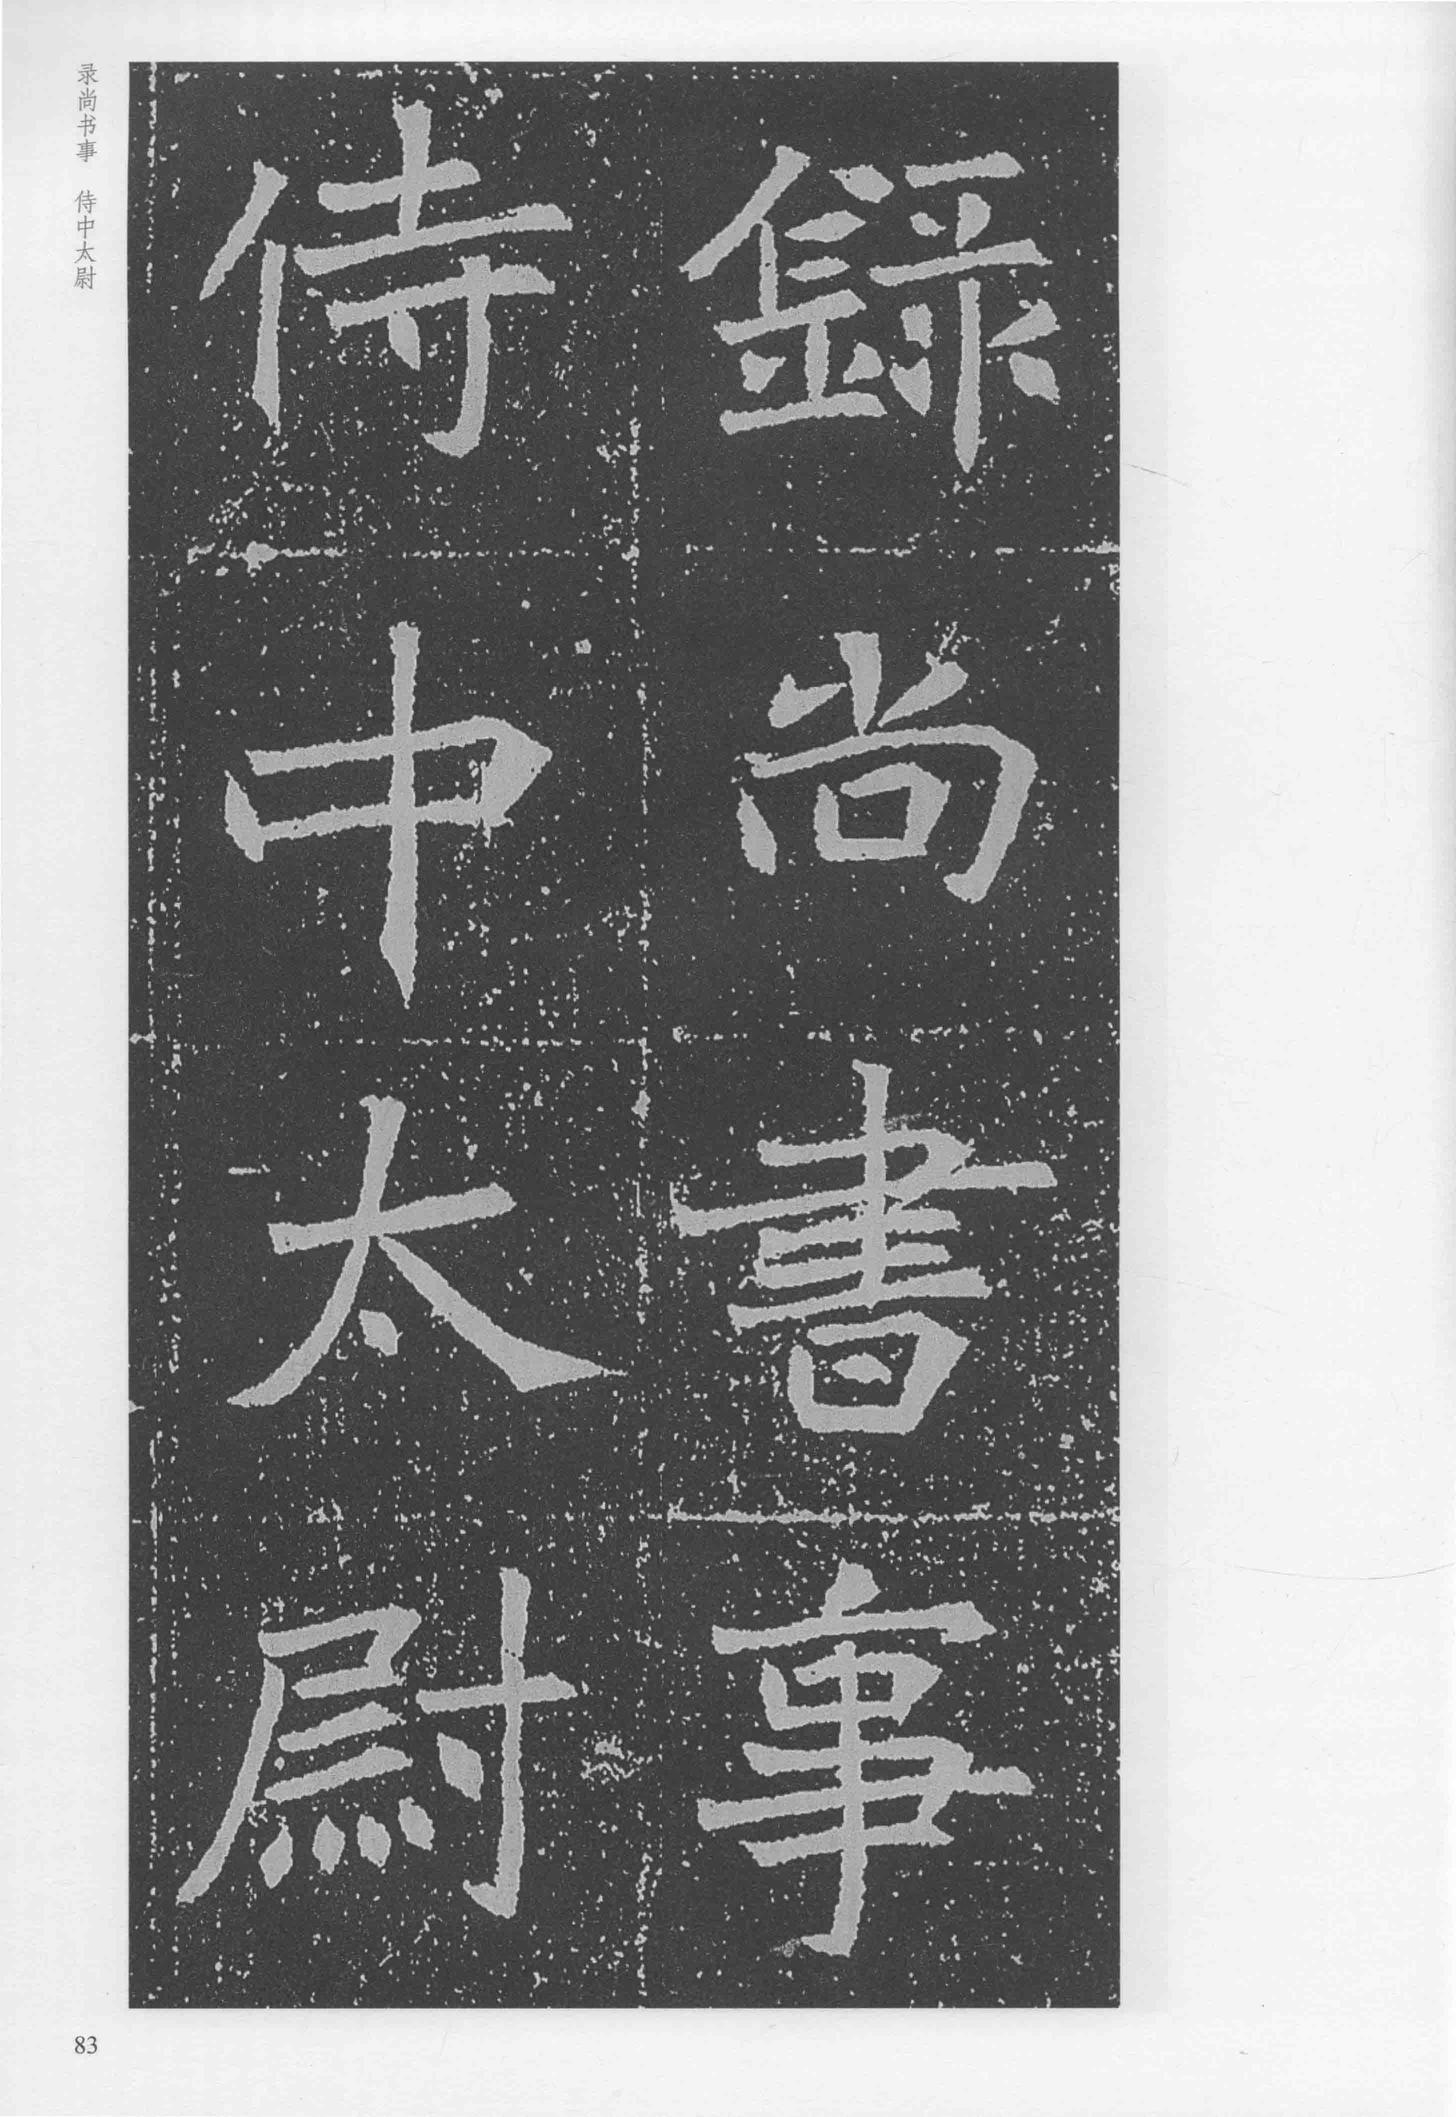 錄尚書事
侍中太尉
录尚书事 侍中太尉
83